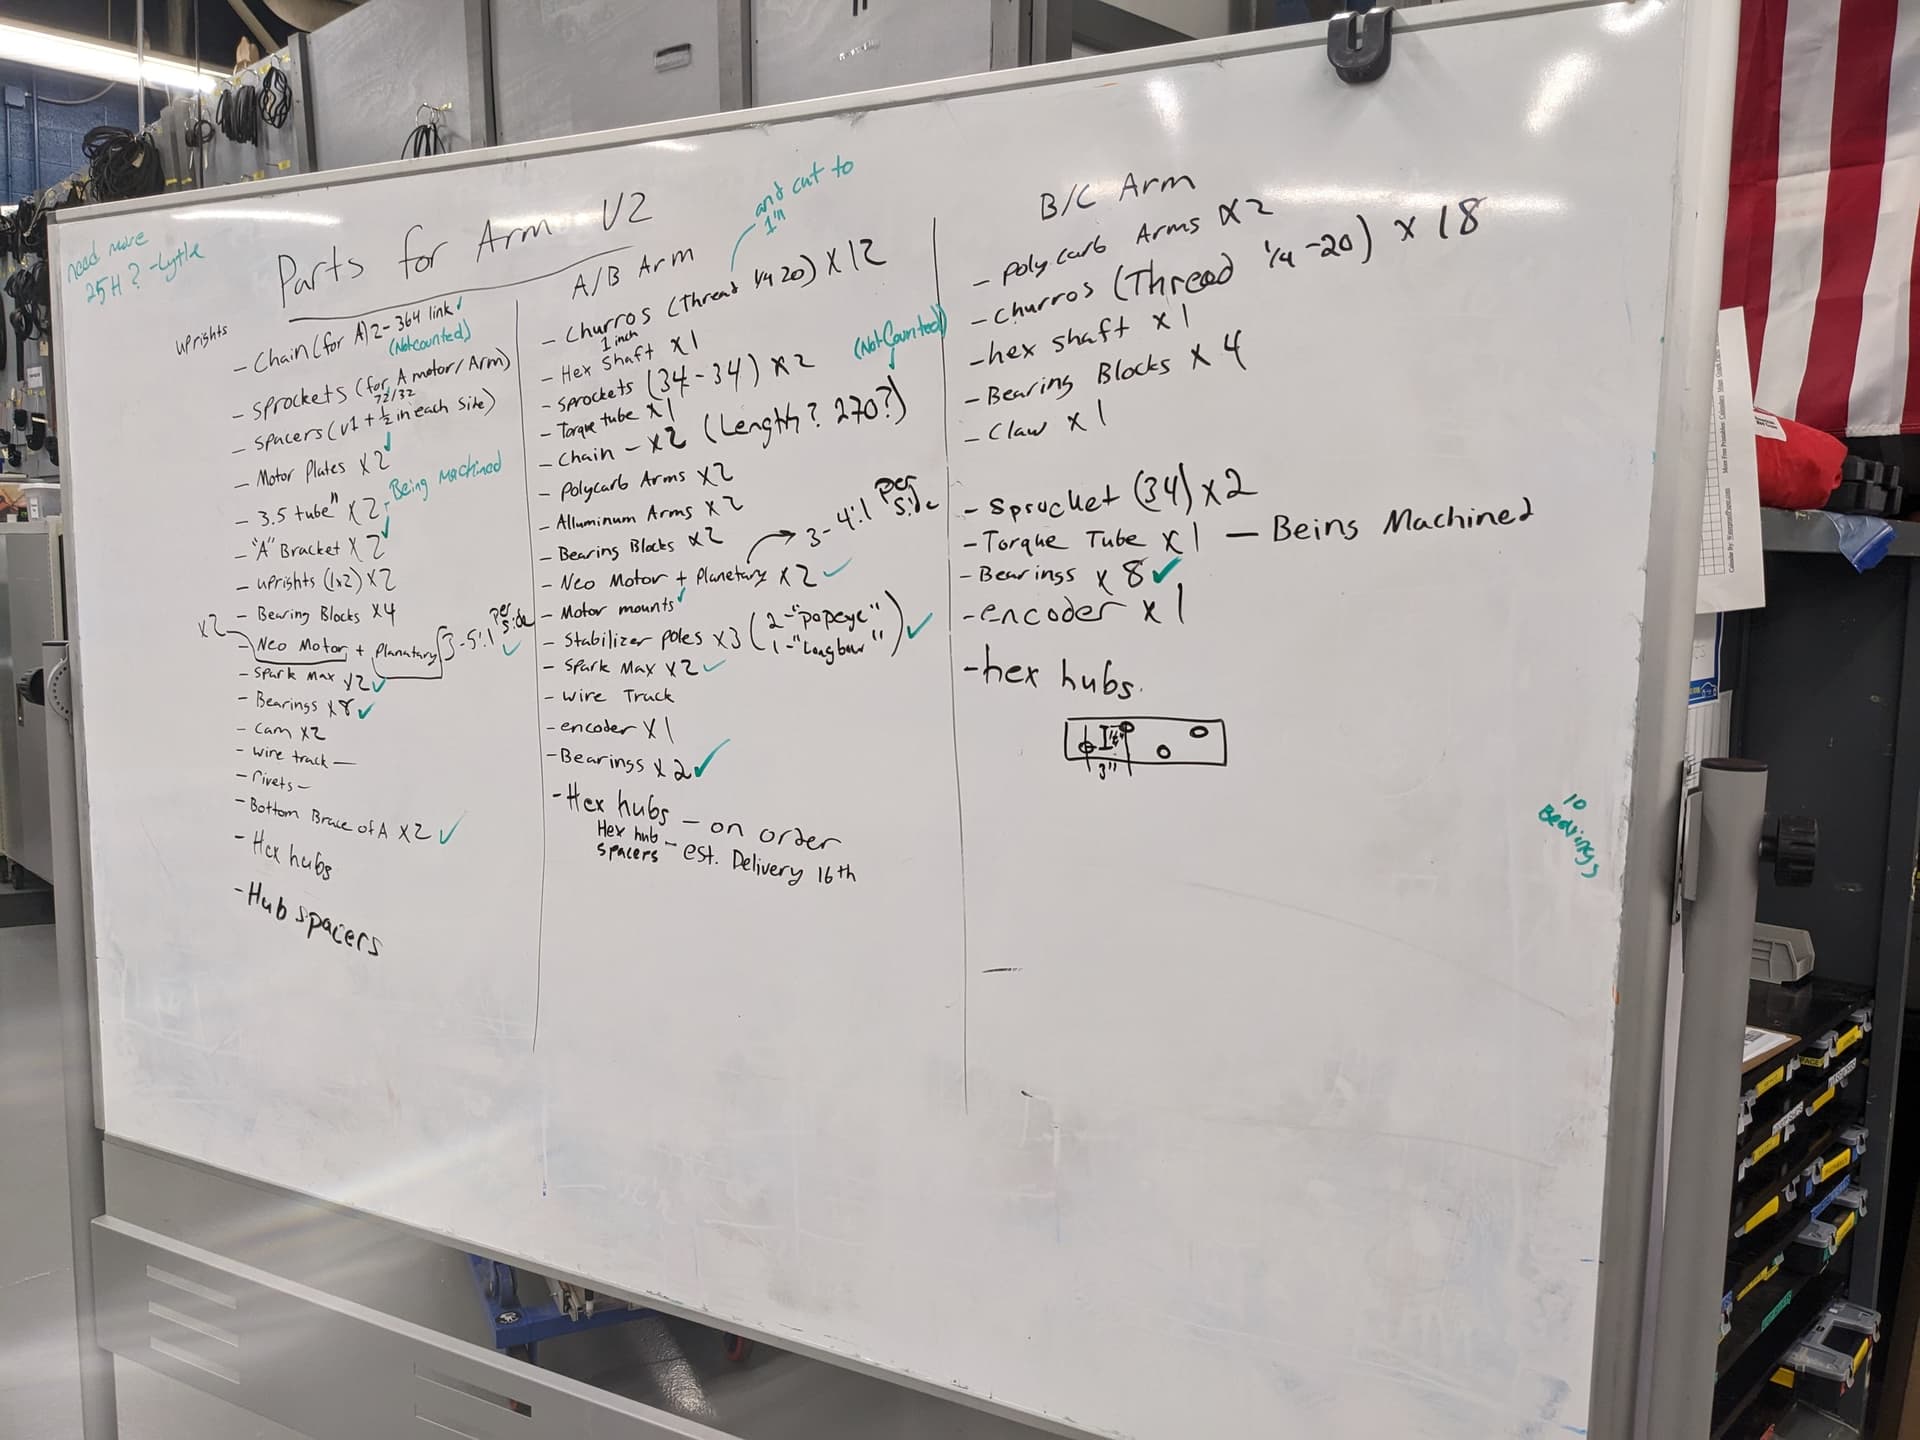 need more
25H? -Lytle
Parts for Arm V2
uprights
- Chain (for A) 2- 364 link ✓
(Not counted)
- Sprockets (for A motor/Arm)
72/32
- Spacers (V1 + 1/2 in each side)
- Motor Plates x2 ✓
- 3.5 tube" x2 - Being Machined
- "A" Bracket x2 ✓
- uprights (1x2) x2
- Bearing Blocks x4
x2
- Neo Motor + Planatary 3-5:1 per side ✓
- Spark Max x2 ✓
- Bearings x8 ✓
- Cam x2
- wire track —
- rivets —
- Bottom Brace of A x2 ✓
- Hex hubs
- Hub spacers
A/B Arm
and cut to
1in
- Churros (Thread 1/4 20) x 12
1 inch
- Hex Shaft x1
- Sprockets (34-34) x2
- Torque tube x1
(Not Counted)
- Chain - x2 (Length? 270?)
- Polycarb Arms x2
- Alluminum Arms x2
- Bearing Blocks x2
- Neo Motor + Planetary x2 ✓ → 3- 4:1 per side
- Motor mounts ✓
- Stabilizer poles x3 (2-"popeye" 1-"Longbow") ✓
- Spark Max x2 ✓
- wire Track
- encoder x1
- Bearings x2 ✓
- Hex hubs — on order
Hex hub spacers - est. Delivery 16th
B/C Arm
- polycarb Arms x2
- churros (Thread 1/4-20) x 18
- hex shaft x1
- Bearing Blocks x 4
- Claw x1
- Sprocket (34) x2
- Torque Tube x1 — Beins Machined
- Bearings x 8 ✓
- encoder x1
- hex hubs.
3"
10
Bearings